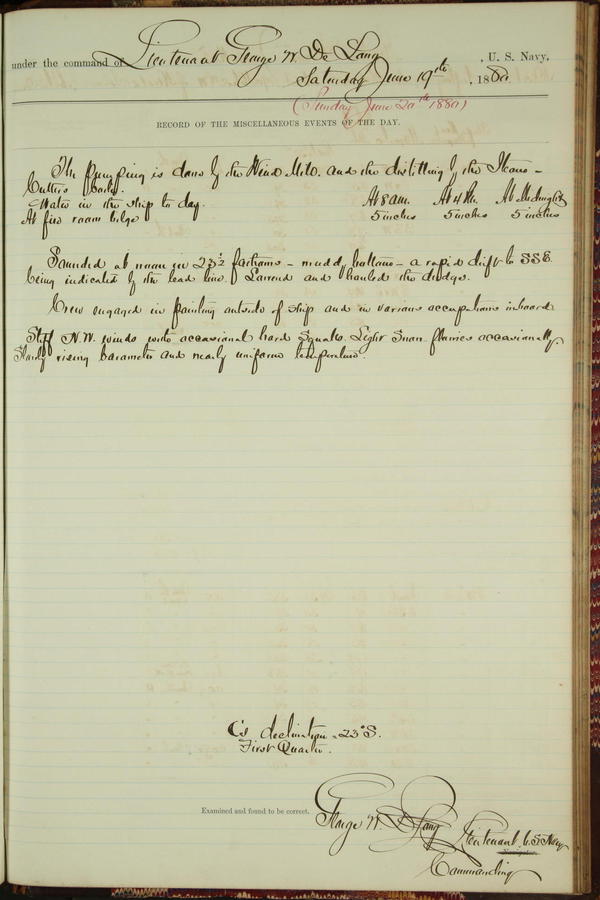 under the command of Lieutenant George W. De Long, U. S. Navy,
Saturday June 19th, 1880.
(Sunday June 20th 1880)
RECORD OF THE MISCELLANEOUS EVENTS OF THE DAY.
The Pumping is done by the Wind Mill. and the distilling by the Steam-
Cutters boiler.
Water in the ship to day. At 8 am. At 4 PM. At Midnight
At fire room bilge 5 inches 5 inches 5 inches
Sounded at noon in 23½ fathoms - muddy bottom - a rapid drift to SSE.
being indicated by the lead line. Lowered and hauled the dredge.
Crew engaged in painting outside of ship and in various occupations inboard
Stiff N.W. winds with occasional hard squalls. Light Snow flurries occasionally.
Slowly rising barometer and nearly uniform temperature.
☾'s declination - 23° S.
First Quarter.
Examined and found to be correct.
George W. De Long Lieutenant U.S. Navy
Navigator.
Commanding